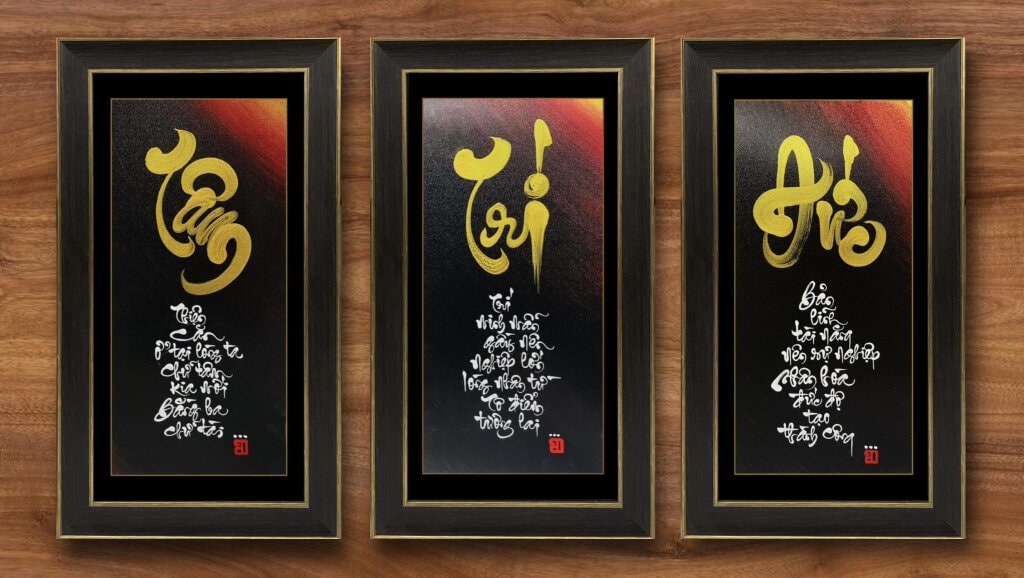 Tâm
Thiện
Căn
Ở tại lòng ta
Chữ tâm
kia mới
Bằng ba
chữ tài
Trí
Trí
minh mẫn
nên
nghiệp lớn
lòng nhân từ
Tô điểm
tương lai
Đức
Bản
lĩnh
tài năng
nên sự nghiệp
Nhân hòa
đức độ
tạo
thành công